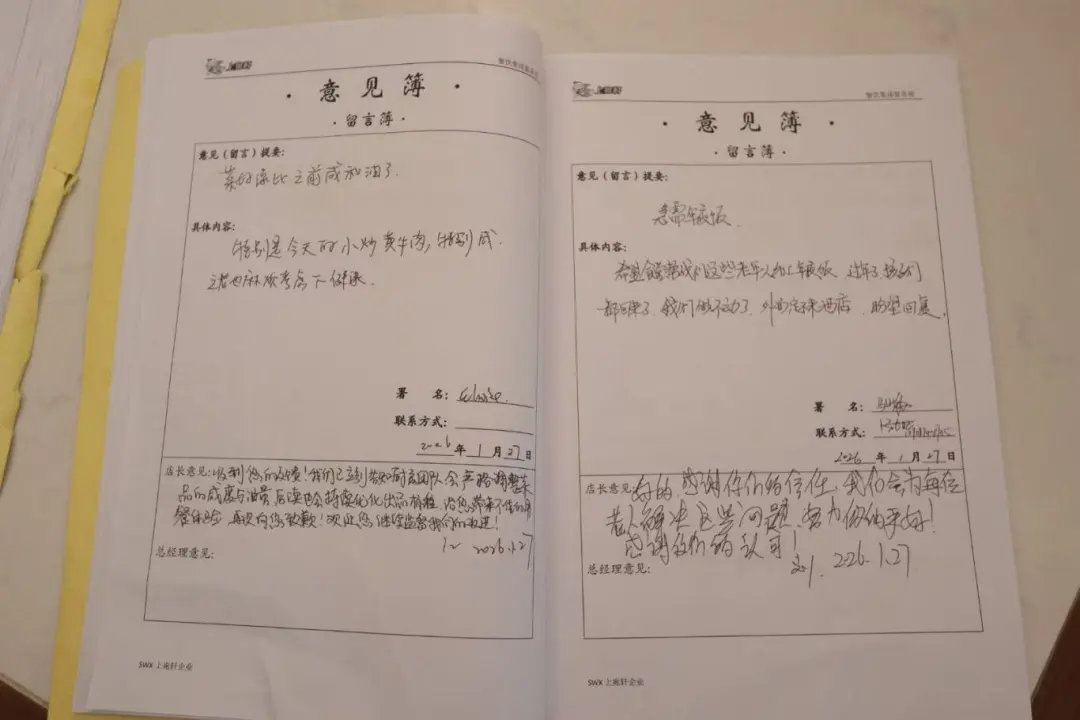 意见簿
·留言簿·
意见（留言）提要：
菜的味比之前咸和油了.
具体内容：
特别是今天的小炒黄牛肉，特别咸.
麻烦考虑下健康.
署 名：
联系方式：
2026年1月27日
店长意见：收到您的反馈！我们已立刻告知厨房团队会严格调整菜
品的咸度与油量，后续也会持续优化出品流程，给您带来不佳的用
餐体验，再次向您致歉！欢迎您继续监督我们的改进！
2026.1.27
总经理意见：
SWX 上苑轩企业
意见簿
·留言簿·
意见（留言）提要：
急需年夜饭.
具体内容：
希望食堂帮我们这些老年人加工年夜饭，过年了，孩子们
都回来了，我们做不动了，外面酒店，盼望回复.
署 名：
联系方式：
2026年1月27日
店长意见：好的，感谢你们的信任，我们会为每位
老人解决这些问题，努力做的更好！
感谢你们的认可！
刘. 226.1.27
总经理意见：
SWX 上苑轩企业